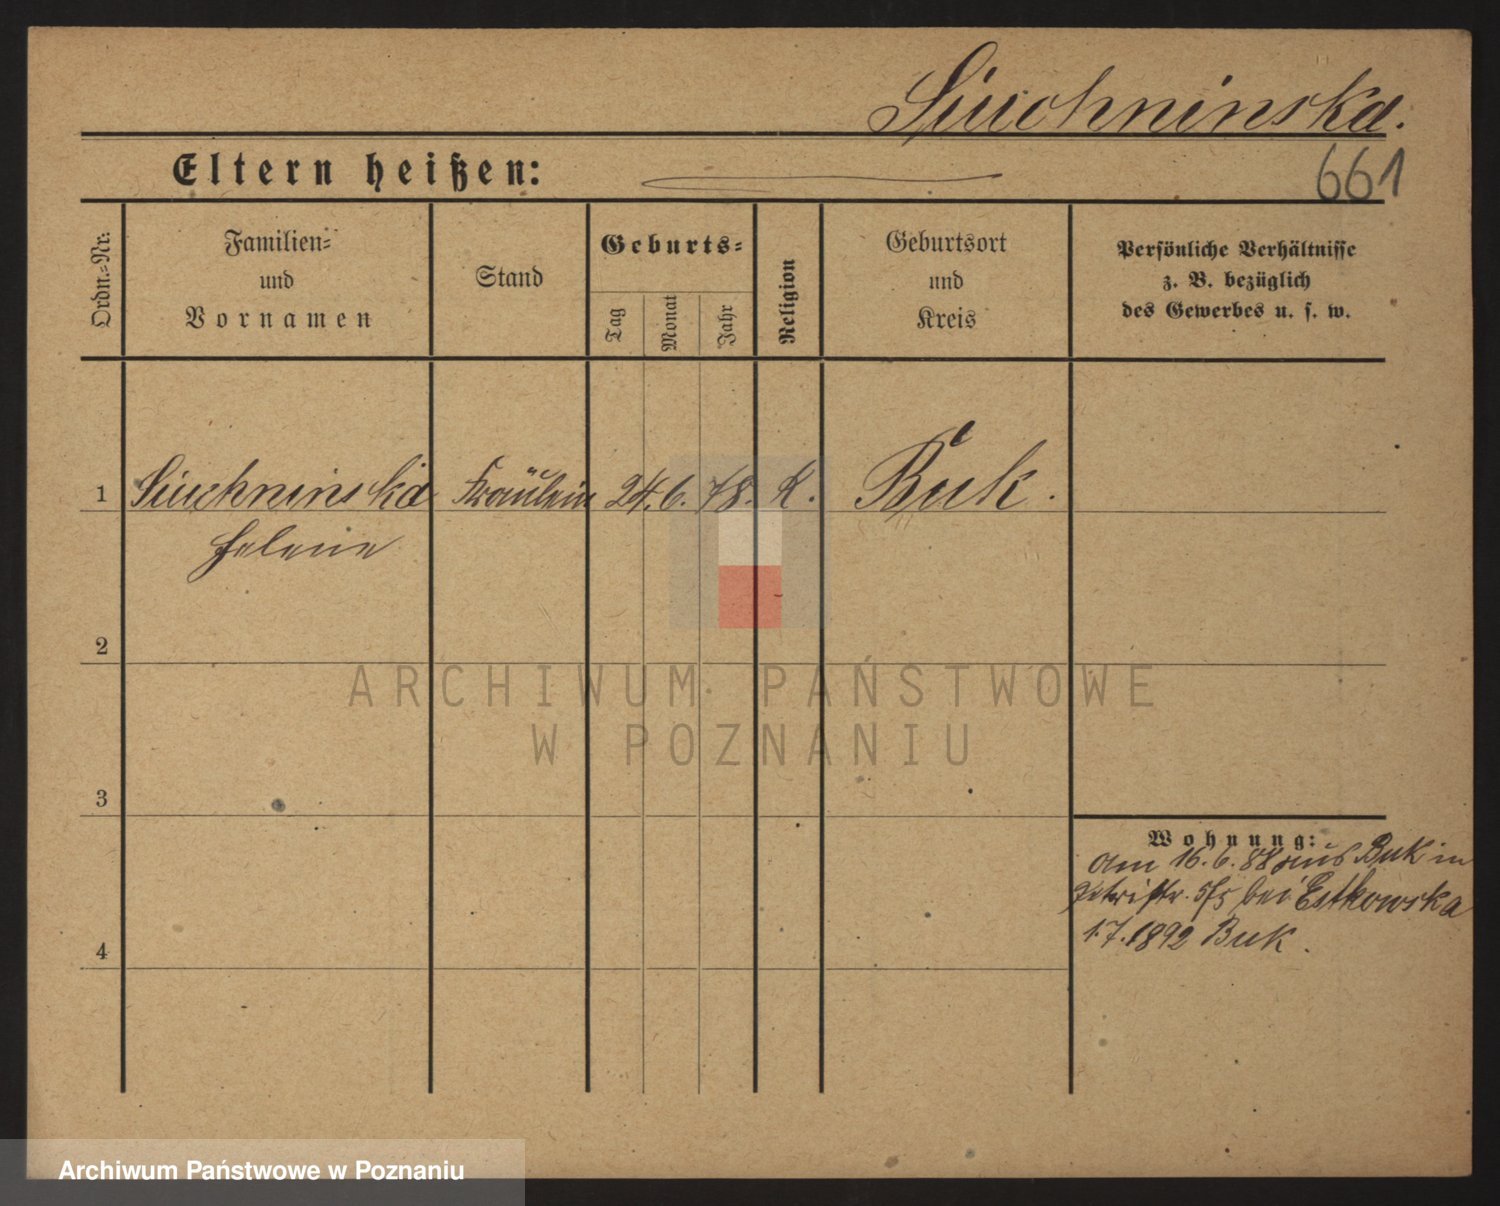 Siuchninska.
Eltern heißen:
661
Ordn.=Nr.
Familien=
und
Vornamen
Stand
Geburts=
Tag
Monat
Jahr
Religion
Geburtsort
und
Kreis
Persönliche Verhältnisse
z. B. bezüglich
des Gewerbes u. s. w.
1
Siuchninska
Fräulein
24. 6. 78. K.
Buk.
Helene
2
ARCHIWUM PAŃSTWOWE
W POZNANIU
3
Wohnung:
am 16. 6. 88 aus Buk in
Petristr. 5/5 bei Estkowska
1.7.1892 Buk.
4
Archiwum Państwowe w Poznaniu